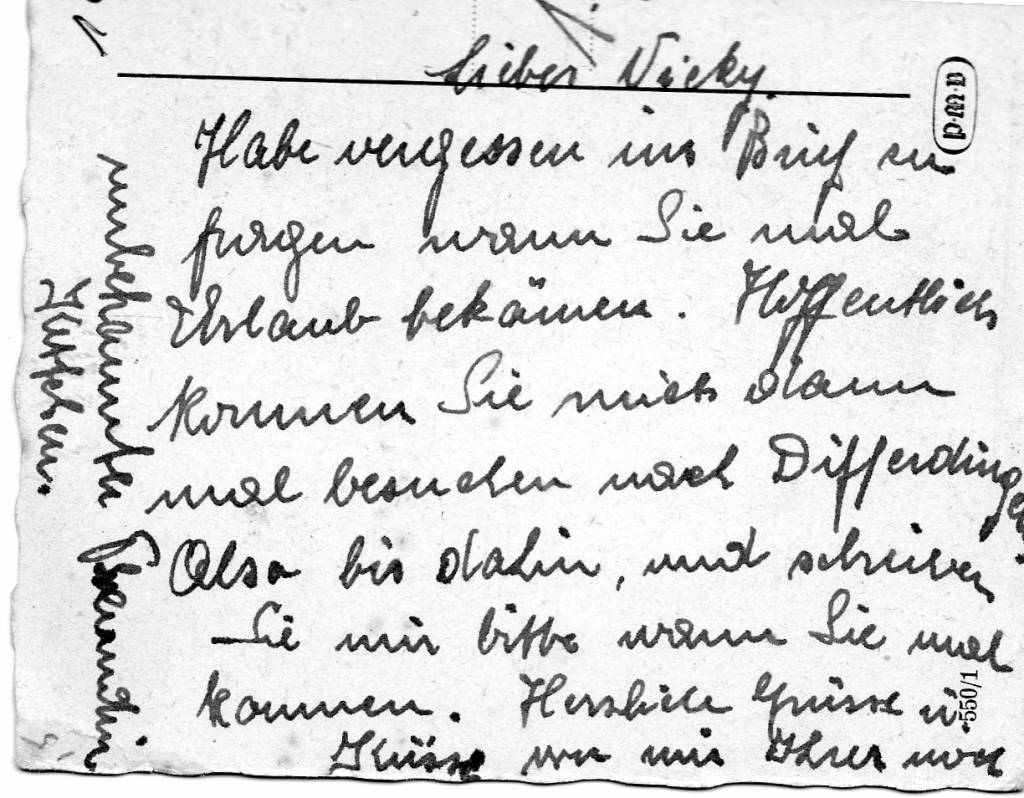 Lieber Vicky.
Habe vergessen im Brief zu
fragen wann Sie mal
Urlaub bekämen. Hoffentlich
kommen Sie mich dann
mal besuchen nach Differdingen
Also bis dahin, und schreiben
Sie mir bitte wann Sie mal
kommen. Herzliche Grüsse u.
Küsse von mir Ihrer noch
unbekannten Freundin.
Käthchen.
P·M·B
550/1